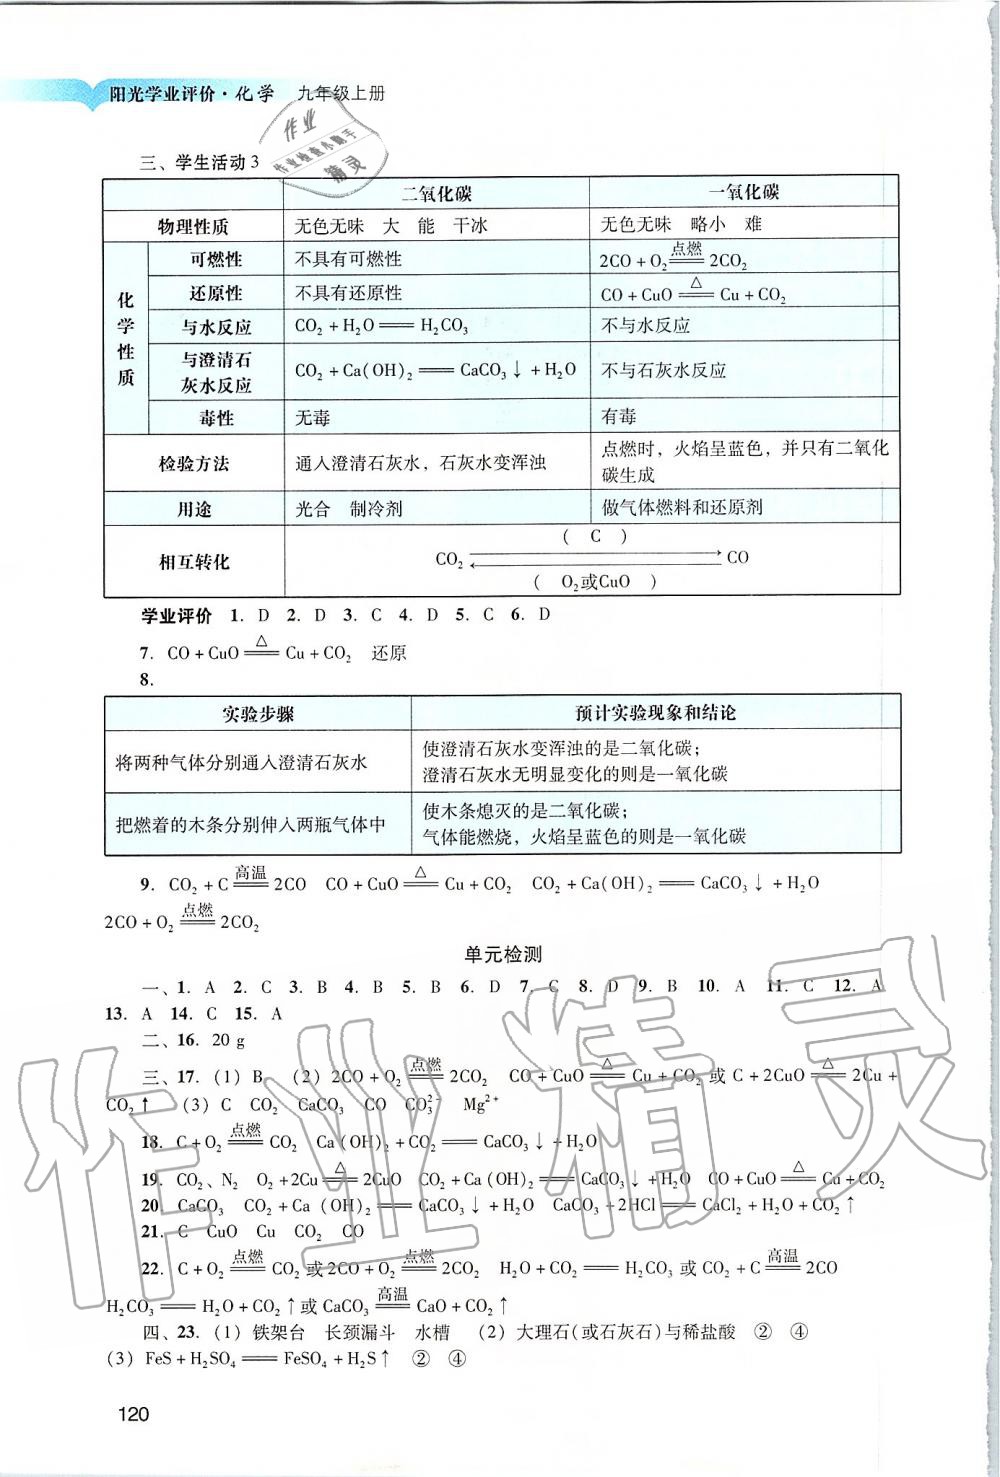 阳光学业评价·化学 九年级上册
作业
作业检查小助手
精灵
三、学生活动 3
二氧化碳 一氧化碳
物理性质 无色无味 大 能 干冰 无色无味 略小 难
化学性质
可燃性 不具有可燃性 2CO + O₂ =点燃= 2CO₂
还原性 不具有还原性 CO + CuO =△= Cu + CO₂
与水反应 CO₂ + H₂O == H₂CO₃ 不与水反应
与澄清石
灰水反应 CO₂ + Ca(OH)₂ == CaCO₃↓ + H₂O 不与石灰水反应
毒性 无毒 有毒
检验方法 通入澄清石灰水，石灰水变浑浊 点燃时，火焰呈蓝色，并只有二氧化
碳生成
用途 光合 制冷剂 做气体燃料和还原剂
( C )
相互转化 CO₂ ⇌ CO
( O₂或CuO )
学业评价 1. D 2. D 3. C 4. D 5. C 6. D
7. CO + CuO =△= Cu + CO₂ 还原
8.
实验步骤 预计实验现象和结论
将两种气体分别通入澄清石灰水 使澄清石灰水变浑浊的是二氧化碳；
澄清石灰水无明显变化的则是一氧化碳
把燃着的木条分别伸入两瓶气体中 使木条熄灭的是二氧化碳；
气体能燃烧，火焰呈蓝色的则是一氧化碳
9. CO₂ + C =高温= 2CO CO + CuO =△= Cu + CO₂ CO₂ + Ca(OH)₂ == CaCO₃↓ + H₂O
2CO + O₂ =点燃= 2CO₂
单元检测
一、1. A 2. C 3. B 4. B 5. B 6. D 7. C 8. D 9. B 10. A 11. C 12. A
13. A 14. C 15. A
二、16. 20 g
三、17. (1) B (2) 2CO + O₂ =点燃= 2CO₂ CO + CuO =△= Cu + CO₂ 或 C + 2CuO =△= 2Cu +
CO₂↑ (3) C CO₂ CaCO₃ CO CO₃²⁻ Mg²⁺
18. C + O₂ =点燃= CO₂ Ca(OH)₂ + CO₂ == CaCO₃↓ + H₂O
19. CO₂、N₂ O₂ + 2Cu =△= 2CuO CO₂ + Ca(OH)₂ == CaCO₃↓ + H₂O CO + CuO =△= Cu + CO₂
20. CaCO₃ CO₂ + Ca(OH)₂ == CaCO₃↓ + H₂O CaCO₃ + 2HCl == CaCl₂ + H₂O + CO₂↑
21. C CuO Cu CO₂ CO
22. C + O₂ =点燃= CO₂ 或 2CO + O₂ =点燃= 2CO₂ H₂O + CO₂ == H₂CO₃ 或 CO₂ + C =高温= 2CO
H₂CO₃ == H₂O + CO₂↑ 或 CaCO₃ =高温= CaO + CO₂↑
四、23. (1) 铁架台 长颈漏斗 水槽 (2) 大理石(或石灰石)与稀盐酸 ② ④
(3) FeS + H₂SO₄ == FeSO₄ + H₂S↑ ② ④
作业精灵
120